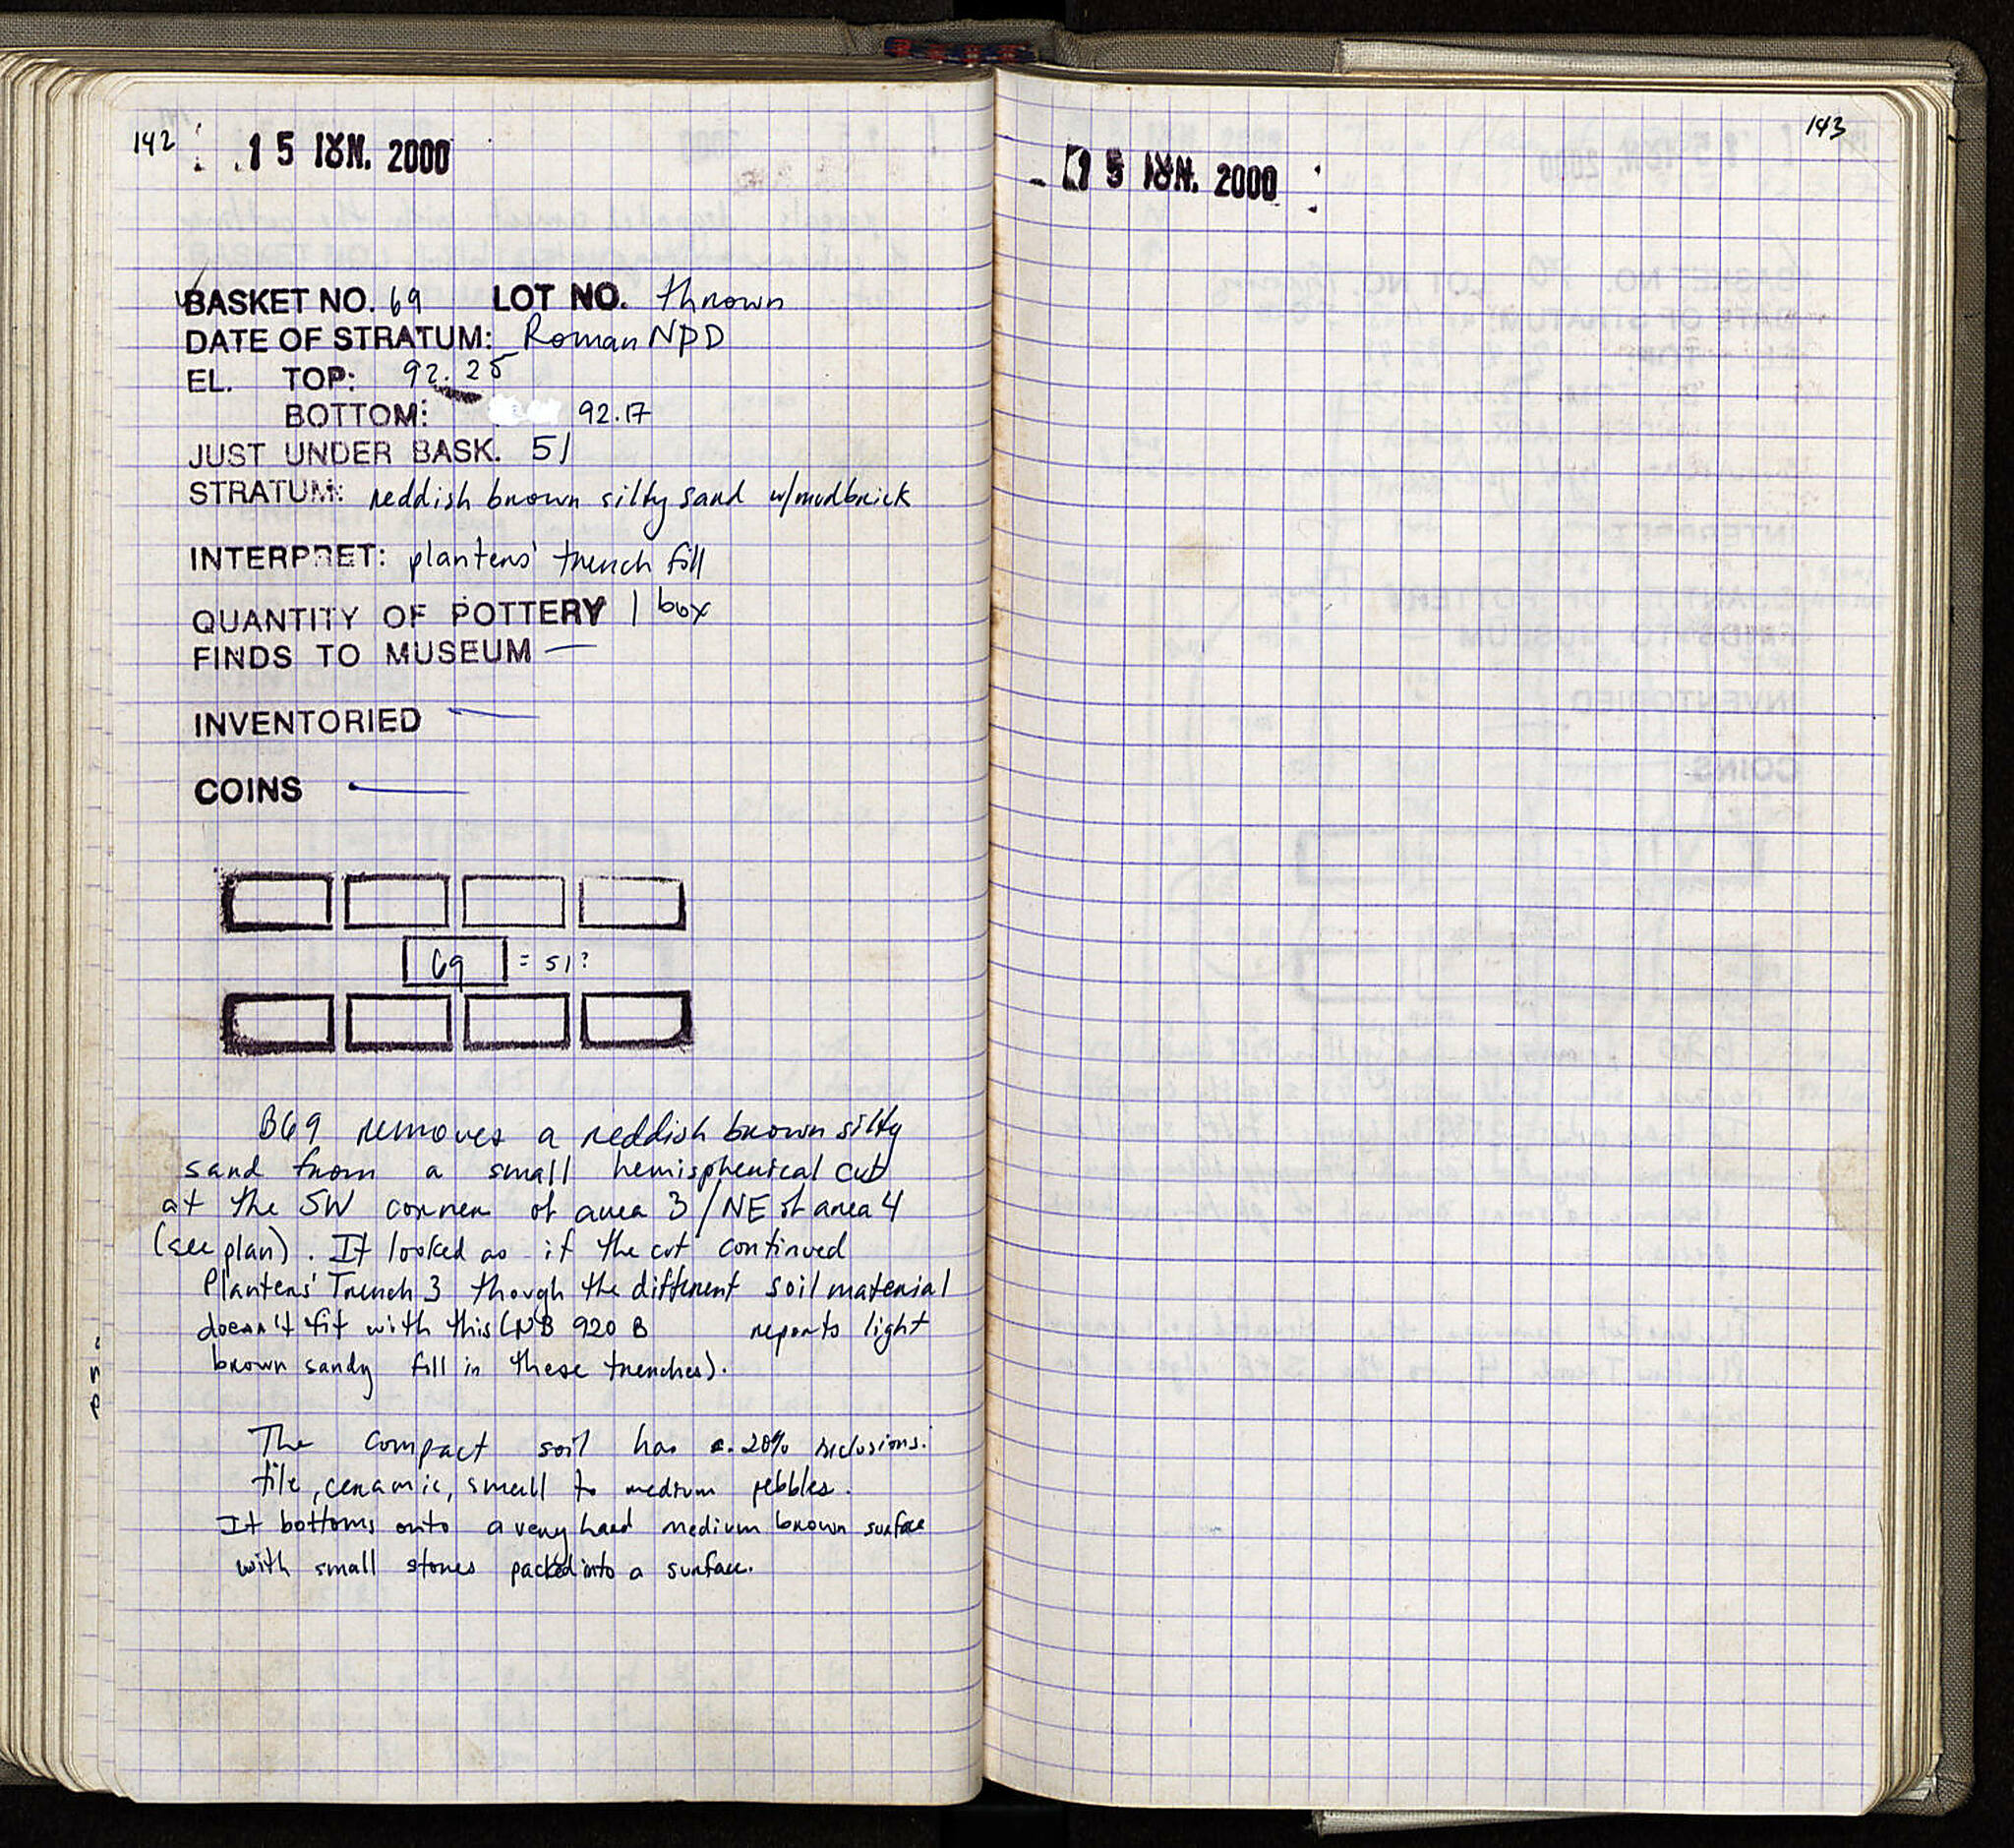 142
15 ΙȢΝ. 2000
BASKET NO. 69 LOT NO. thrown
DATE OF STRATUM: Roman NPD
EL. TOP: 92.25
BOTTOM: 92.17
JUST UNDER BASK. 51
STRATUM: reddish brown silty sand w/mudbrick
INTERPRET: planters' trench fill
QUANTITY OF POTTERY 1 box
FINDS TO MUSEUM —
INVENTORIED —
COINS —
69 = 51?
B69 removes a reddish brown silty
sand from a small hemispherical cut
at the SW corner of area 3/NE of area 4
(see plan). It looked as if the cut continued
Planters' Trench 3 though the different soil material
doesn't fit with this (NB 920 B reports light
brown sandy fill in these trenches).
The compact soil has c. 20% inclusions:
tile, ceramic, small to medium pebbles.
It bottoms onto a very hard medium brown surface
with small stones packed into a surface.
143
15 ΙȢΝ. 2000